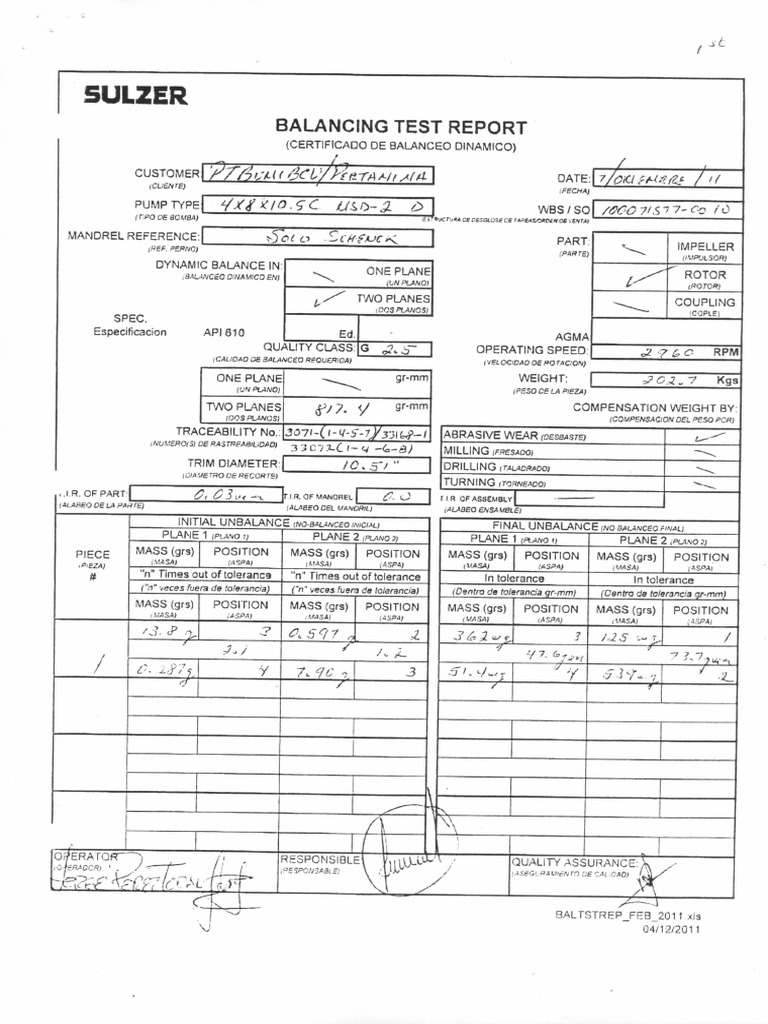 1st
SULZER
BALANCING TEST REPORT
(CERTIFICADO DE BALANCEO DINAMICO)
CUSTOMER: (CLIENTE)
DATE: 7/DICIEMBRE/11 (FECHA)
PUMP TYPE (TIPO DE BOMBA) 4X8X10.5C MSD-2 D
WBS / SO 100071577-0010
ESTRUCTURA DE DESGLOSE DE TAREAS/ORDEN DE VENTA)
MANDREL REFERENCE: (REF. PERNO) SOLO SCHENCK
PART: (PARTE)
IMPELLER (IMPULSOR)
ROTOR (ROTOR) ✓
COUPLING (COPLE)
DYNAMIC BALANCE IN: (BALANCEO DINAMICO EN)
ONE PLANE (UN PLANO)
✓ TWO PLANES (DOS PLANOS)
SPEC. Especificacion API 610 Ed.
QUALITY CLASS: G 2.5
(CALIDAD DE BALANCEO REQUERIDA)
AGMA
OPERATING SPEED: 2960 RPM
(VELOCIDAD DE ROTACION)
ONE PLANE (UN PLANO) gr-mm
WEIGHT: 202.7 Kgs
(PESO DE LA PIEZA)
TWO PLANES (DOS PLANOS) 817.4 gr-mm
COMPENSATION WEIGHT BY:
(COMPENSACION DEL PESO POR)
TRACEABILITY No.: 3071-(1-4-5-7)/33168-1
(NUMERO(S) DE RASTREABILIDAD) 33072(1-4-6-8)
ABRASIVE WEAR (DESBASTE) ✓
MILLING (FRESADO)
DRILLING (TALADRADO)
TURNING (TORNEADO)
TRIM DIAMETER: 10.51"
(DIAMETRO DE RECORTE)
T.I.R. OF PART: 0.03
(ALABEO DE LA PARTE)
T.I.R. OF MANDREL 0.0
(ALABEO DEL MANDRIL)
T.I.R. OF ASSEMBLY
(ALABEO ENSAMBLE)
PIECE (PIEZA) #
INITIAL UNBALANCE (NO-BALANCEO INICIAL)
FINAL UNBALANCE (NO BALANCEO FINAL)
PLANE 1 (PLANO 1) PLANE 2 (PLANO 2) PLANE 1 (PLANO 1) PLANE 2 (PLANO 2)
MASS (grs) POSITION MASS (grs) POSITION MASS (grs) POSITION MASS (grs) POSITION
(MASA) (ASPA) (MASA) (ASPA) (MASA) (ASPA) (MASA) (ASPA)
"n" Times out of tolerance "n" Times out of tolerance In tolerance In tolerance
("n" veces fuera de tolerancia) ("n" veces fuera de tolerancia) (Dentro de tolerancia gr-mm) (Dentro de tolerancia gr-mm)
MASS (grs) POSITION MASS (grs) POSITION MASS (grs) POSITION MASS (grs) POSITION
(MASA) (ASPA) (MASA) (ASPA) (MASA) (ASPA) (MASA) (ASPA)
13.8 g 3 0.597 g 2 362mg 3 125 mg 1
1 2.1 1.2 47.6gmm 73.7gmm
0.287g 4 7.90 g 3 51.4mg 4 534mg 2
OPERATOR (OPERADOR)
RESPONSIBLE (RESPONSABLE)
QUALITY ASSURANCE: (ASEGURAMIENTO DE CALIDAD)
BALTSTREP_FEB_2011 xls
04/12/2011